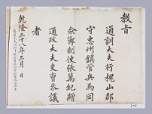 敎旨
通訓大夫行槐山郡
守忠州鎭管兵馬同
僉節制使張萬紀贈
通政大夫吏曹參議
者
乾隆三十八年三月 日